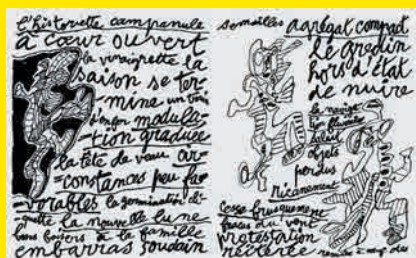 l'historiette campanule
à cœur ouvert
la vinaigrette la
saison se ter-
mine un bois
modula-
tion graduée
la tête de veau cir-
constances peu fa-
vorables la germination
la nouvelle lune
bons baisers à la famille
embarras soudain
semailles agrégat compact
le gredin
hors d'état
de nuire
la naviga-
tion fluviale
objets
perdus
ricanement
cesse brusquement
fracas du vent
protestation
réitérée